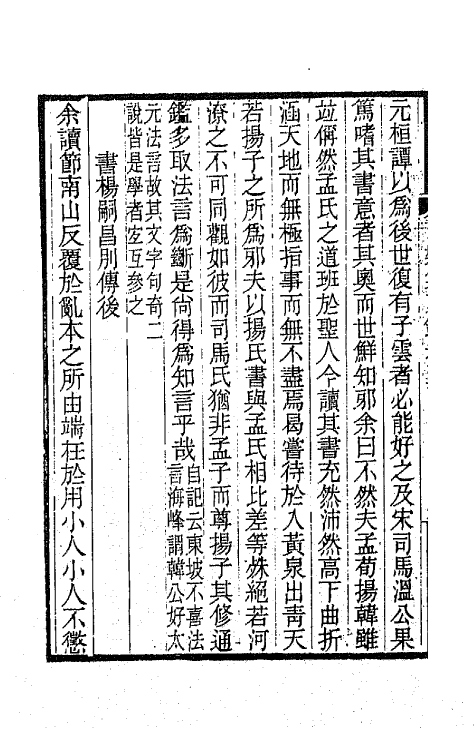 元桓譚以爲後世復有子雲者必能好之及宋司馬溫公果
篤嗜其書意者其奧而世鮮知邪余曰不然夫孟荀揚韓雖
竝偁然孟氏之道班於聖人今讀其書充然沛然高下曲折
涵天地而無極指事而無不盡焉曷嘗待於入黃泉出靑天
若揚子之所爲邪夫以揚氏書與孟氏相比差等殊絕若河
潦之不可同觀如彼而司馬氏猶非孟子而尊揚子其修通
鑑多取法言爲斷是尙得爲知言乎哉自記云東坡不喜法
言海峰謂韓公好太
元法言故其文字句奇二
說皆是學者宜互參之
書楊嗣昌別傳後
余讀節南山反覆於亂本之所由端在於用小人小人不懲